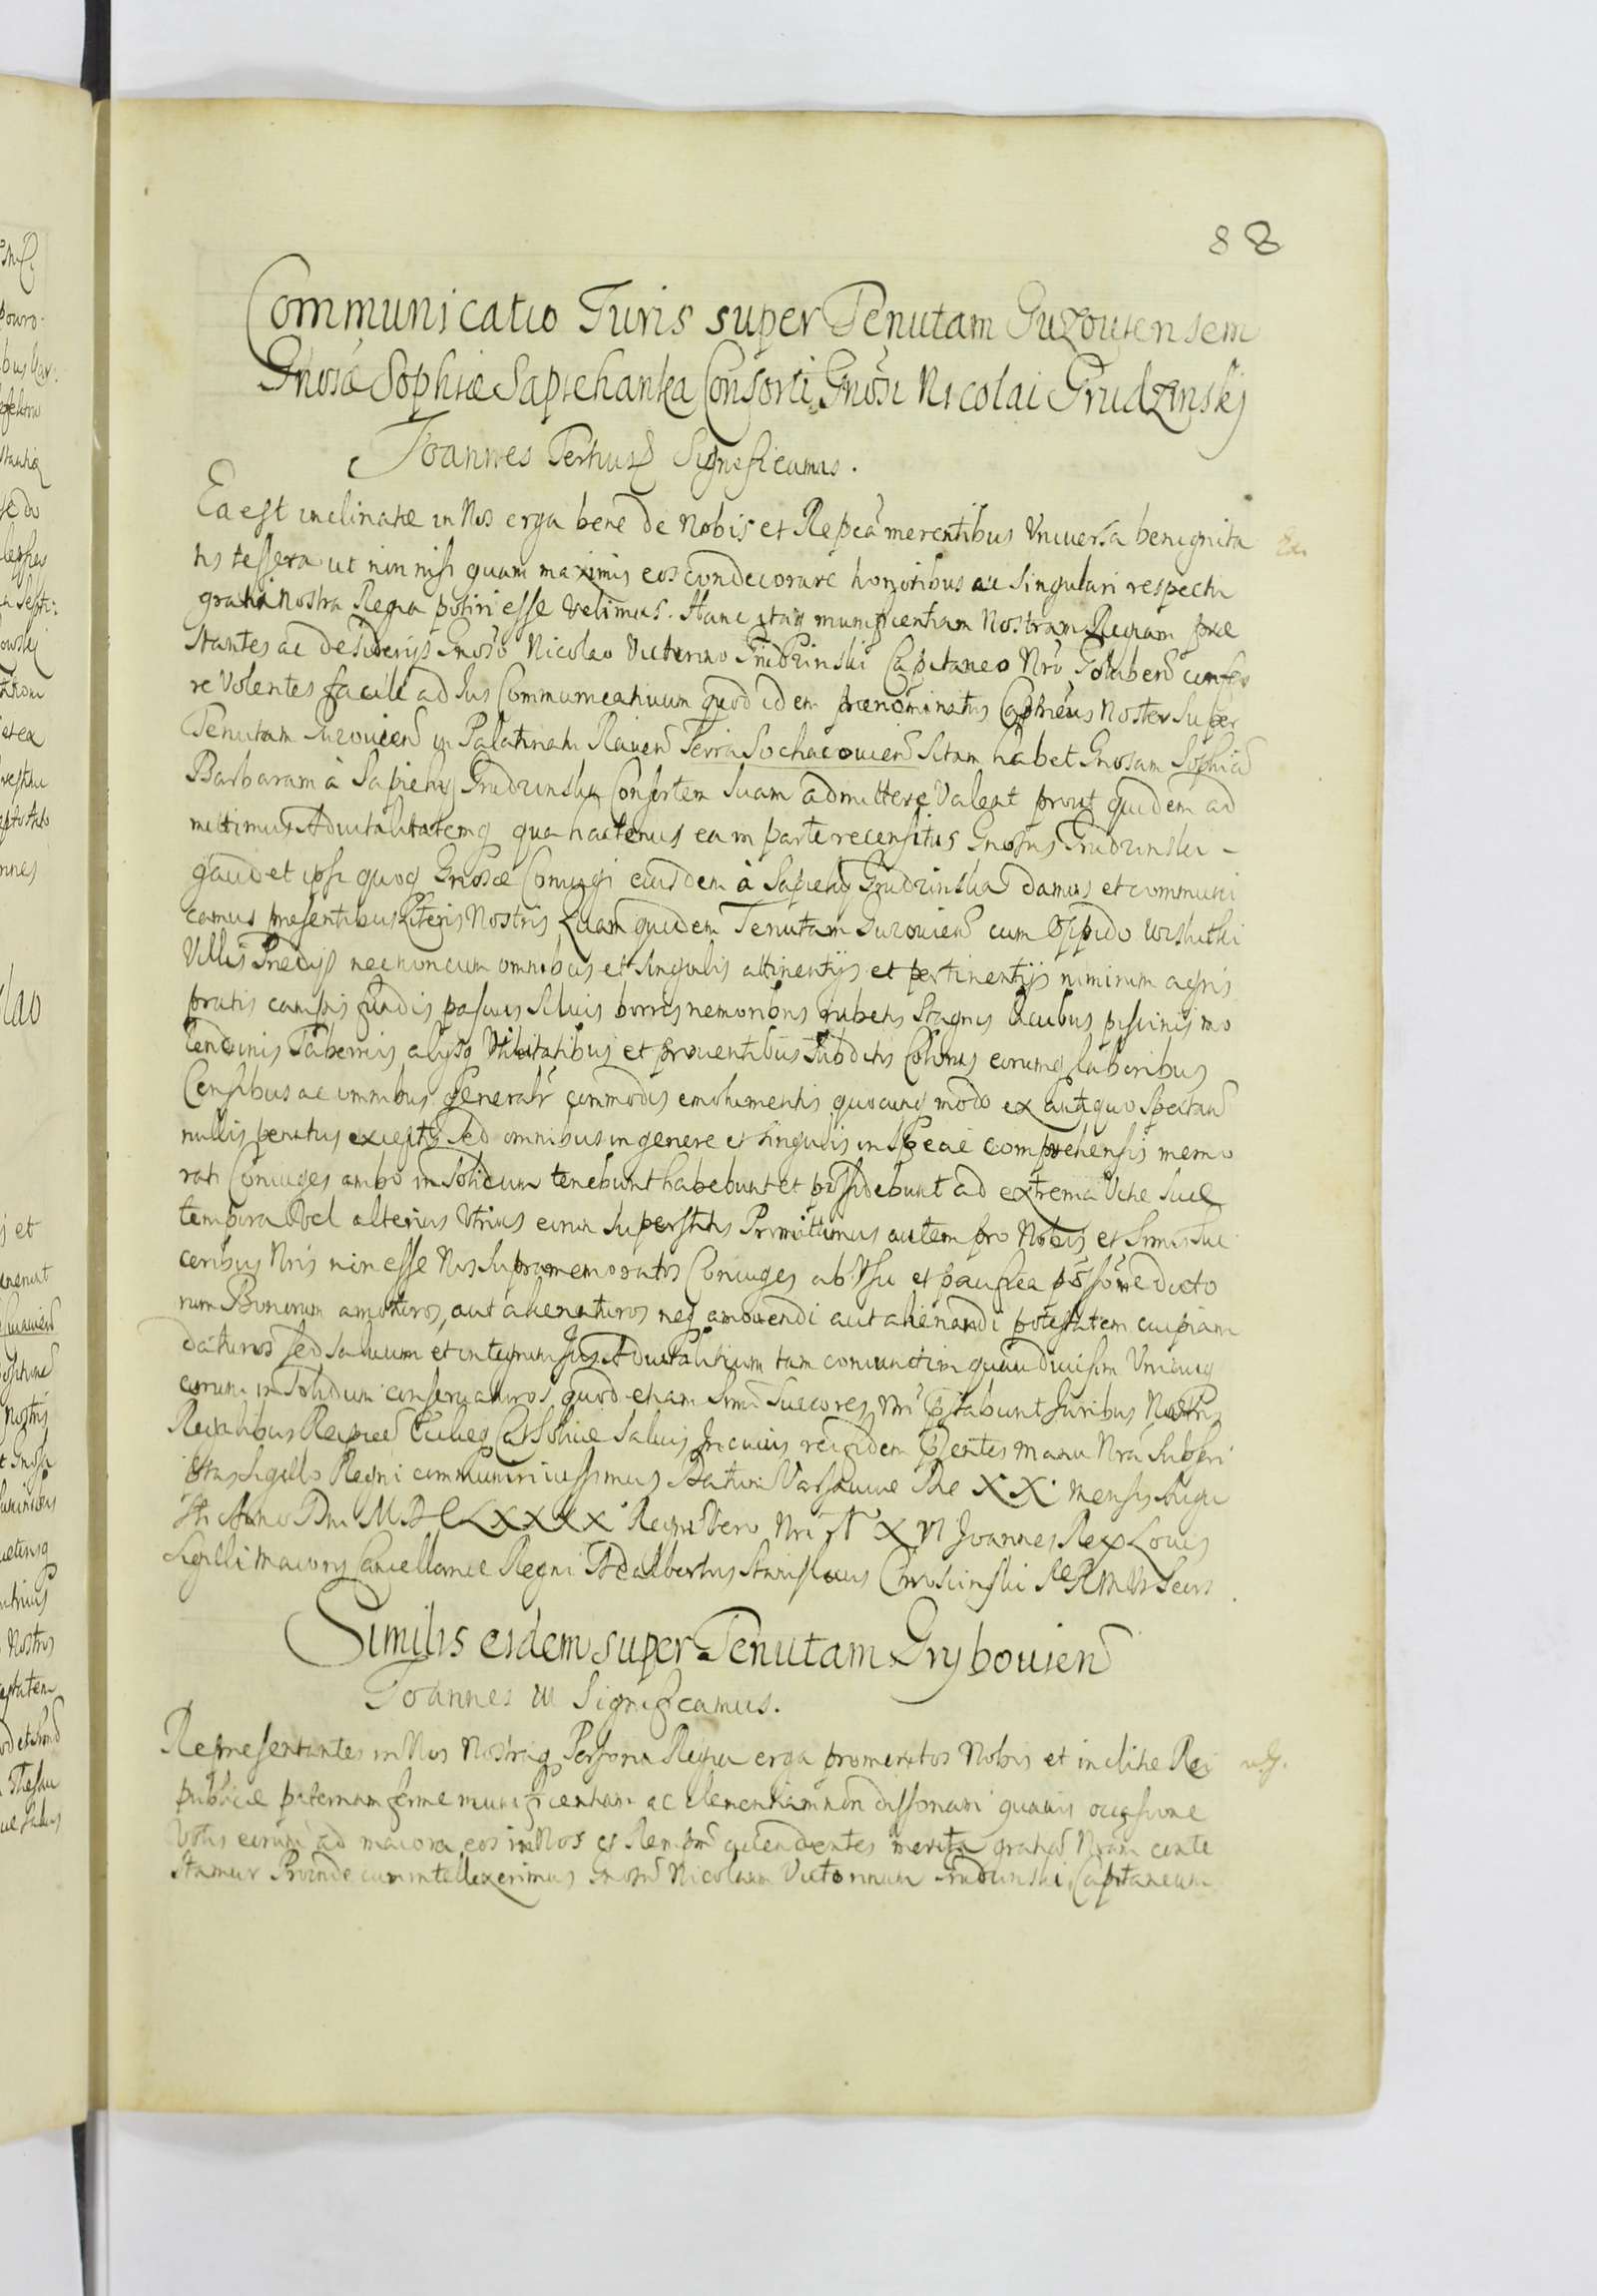 88
Communicatio Juris super Tenutam Guzouiensem
Gnosæ Sophiæ Sapiehanka Consorti Gnosi Nicolai Grudzinskj
Joannes Tertius Significamus.
Ea est inclinatæ in Nos erga bene de Nobis et Repcâ merentibus Vniuersa benignita
tis tessera ut non nisi quam maximis eos condecorare honoribus ac singulari respectu
gratia Nostra Regia potiri esse velimus. Hanc itaq munificentiam Nostram Regiam præ
stantes ac desiderijs Gnoso Nicolao Victorino Grudzinski Capitaneo Nro Golubens
re Volentes facile ad Jus Communicatiuum quod idem prænominatus Captneus Noster super
Tenutam Guzouien in Palatinatu Rauen Terra Sochaczouien sitam habet Gnosam Sophiã
Barbaram à Sapiehy Grudzinska Consortem Suam admittere Valeat prout quidem ad
mittimus Aduitalitatemq qua hactenus ea in parte recensitus Gnosus Grudzinski -
gaudet ipsi quoq Gnosæ Coniugi eiusdem à Sapiehy Grudzinska damus et communi
camus presentibus Literis Nostris Quam quidem Tenutam Guzouien cum Oppido Wiskitki
Villis Predijs necnon cum omnibus et singulis attinentijs et pertinentijs nimirum agris
pratis campis fundis pascuis siluis borris nemoribus rubetis stagnis lacubus piscinis mo
lendinis Tabernis alijsq Vtilitatibus et prouentibus Subditis Colonis eorumq laboribus
Censibus ac omnibus generalr commodis emolumentis quocunq modo ex antiquo spectan
nullis penitus exceptis sed omnibus in genere et singulis in specie comprehensis memo
rati Coniuges ambo in solidum tenebunt habebunt et possidebunt ad extrema Vitæ suæ
tempora Vel alterius Vtrius eorum Superstitis Promittimus autem pro Nobis et Srmis Suc
ceribus Nris non esse Nos supramemoratos Coniuges ab Vsu et dicto
rum Bonorum amoturos, aut alienaturos neq amouendi aut alienandi potestatem cuipiam
daturos sed saluum et integrum Jus Aduitalitium tam coniunctim quam diuisim Vnicuiq
eorum in solidum conseruaturos quod etiam Srmi Succores Nri Juribus Nostris
Regalibus Reipce Eccleq Catholicæ saluis In cuius rei fidem Pntes manu Nrâ subscri
ptas sigillo Regni communiri iussimus Datum Varsauiæ Die XX mensis Augu
sti Anno Dni MDCLXXXX Regni Vero Nri Joannes Rex Locus
Sigilli Maioris Cancellariæ Regni Adalbertus Stanislaus Secrs
Similis eidem super Tenutam Grybouien
Joannes III Significamus.
Represertantes in Nos Nostraq Persona Regia erga promeritos Nobis et inclitæ Rei
publicæ paternam ferme munificentiam ac clementiam non dissonam quauis occasione
Votis eorum ad maiora eos in Nos et Rempm merita gratiã Nram conte
stamur Proinde cum intellexerimus Gnosum Nicolaum Victorinum Grudzinski Capitaneum